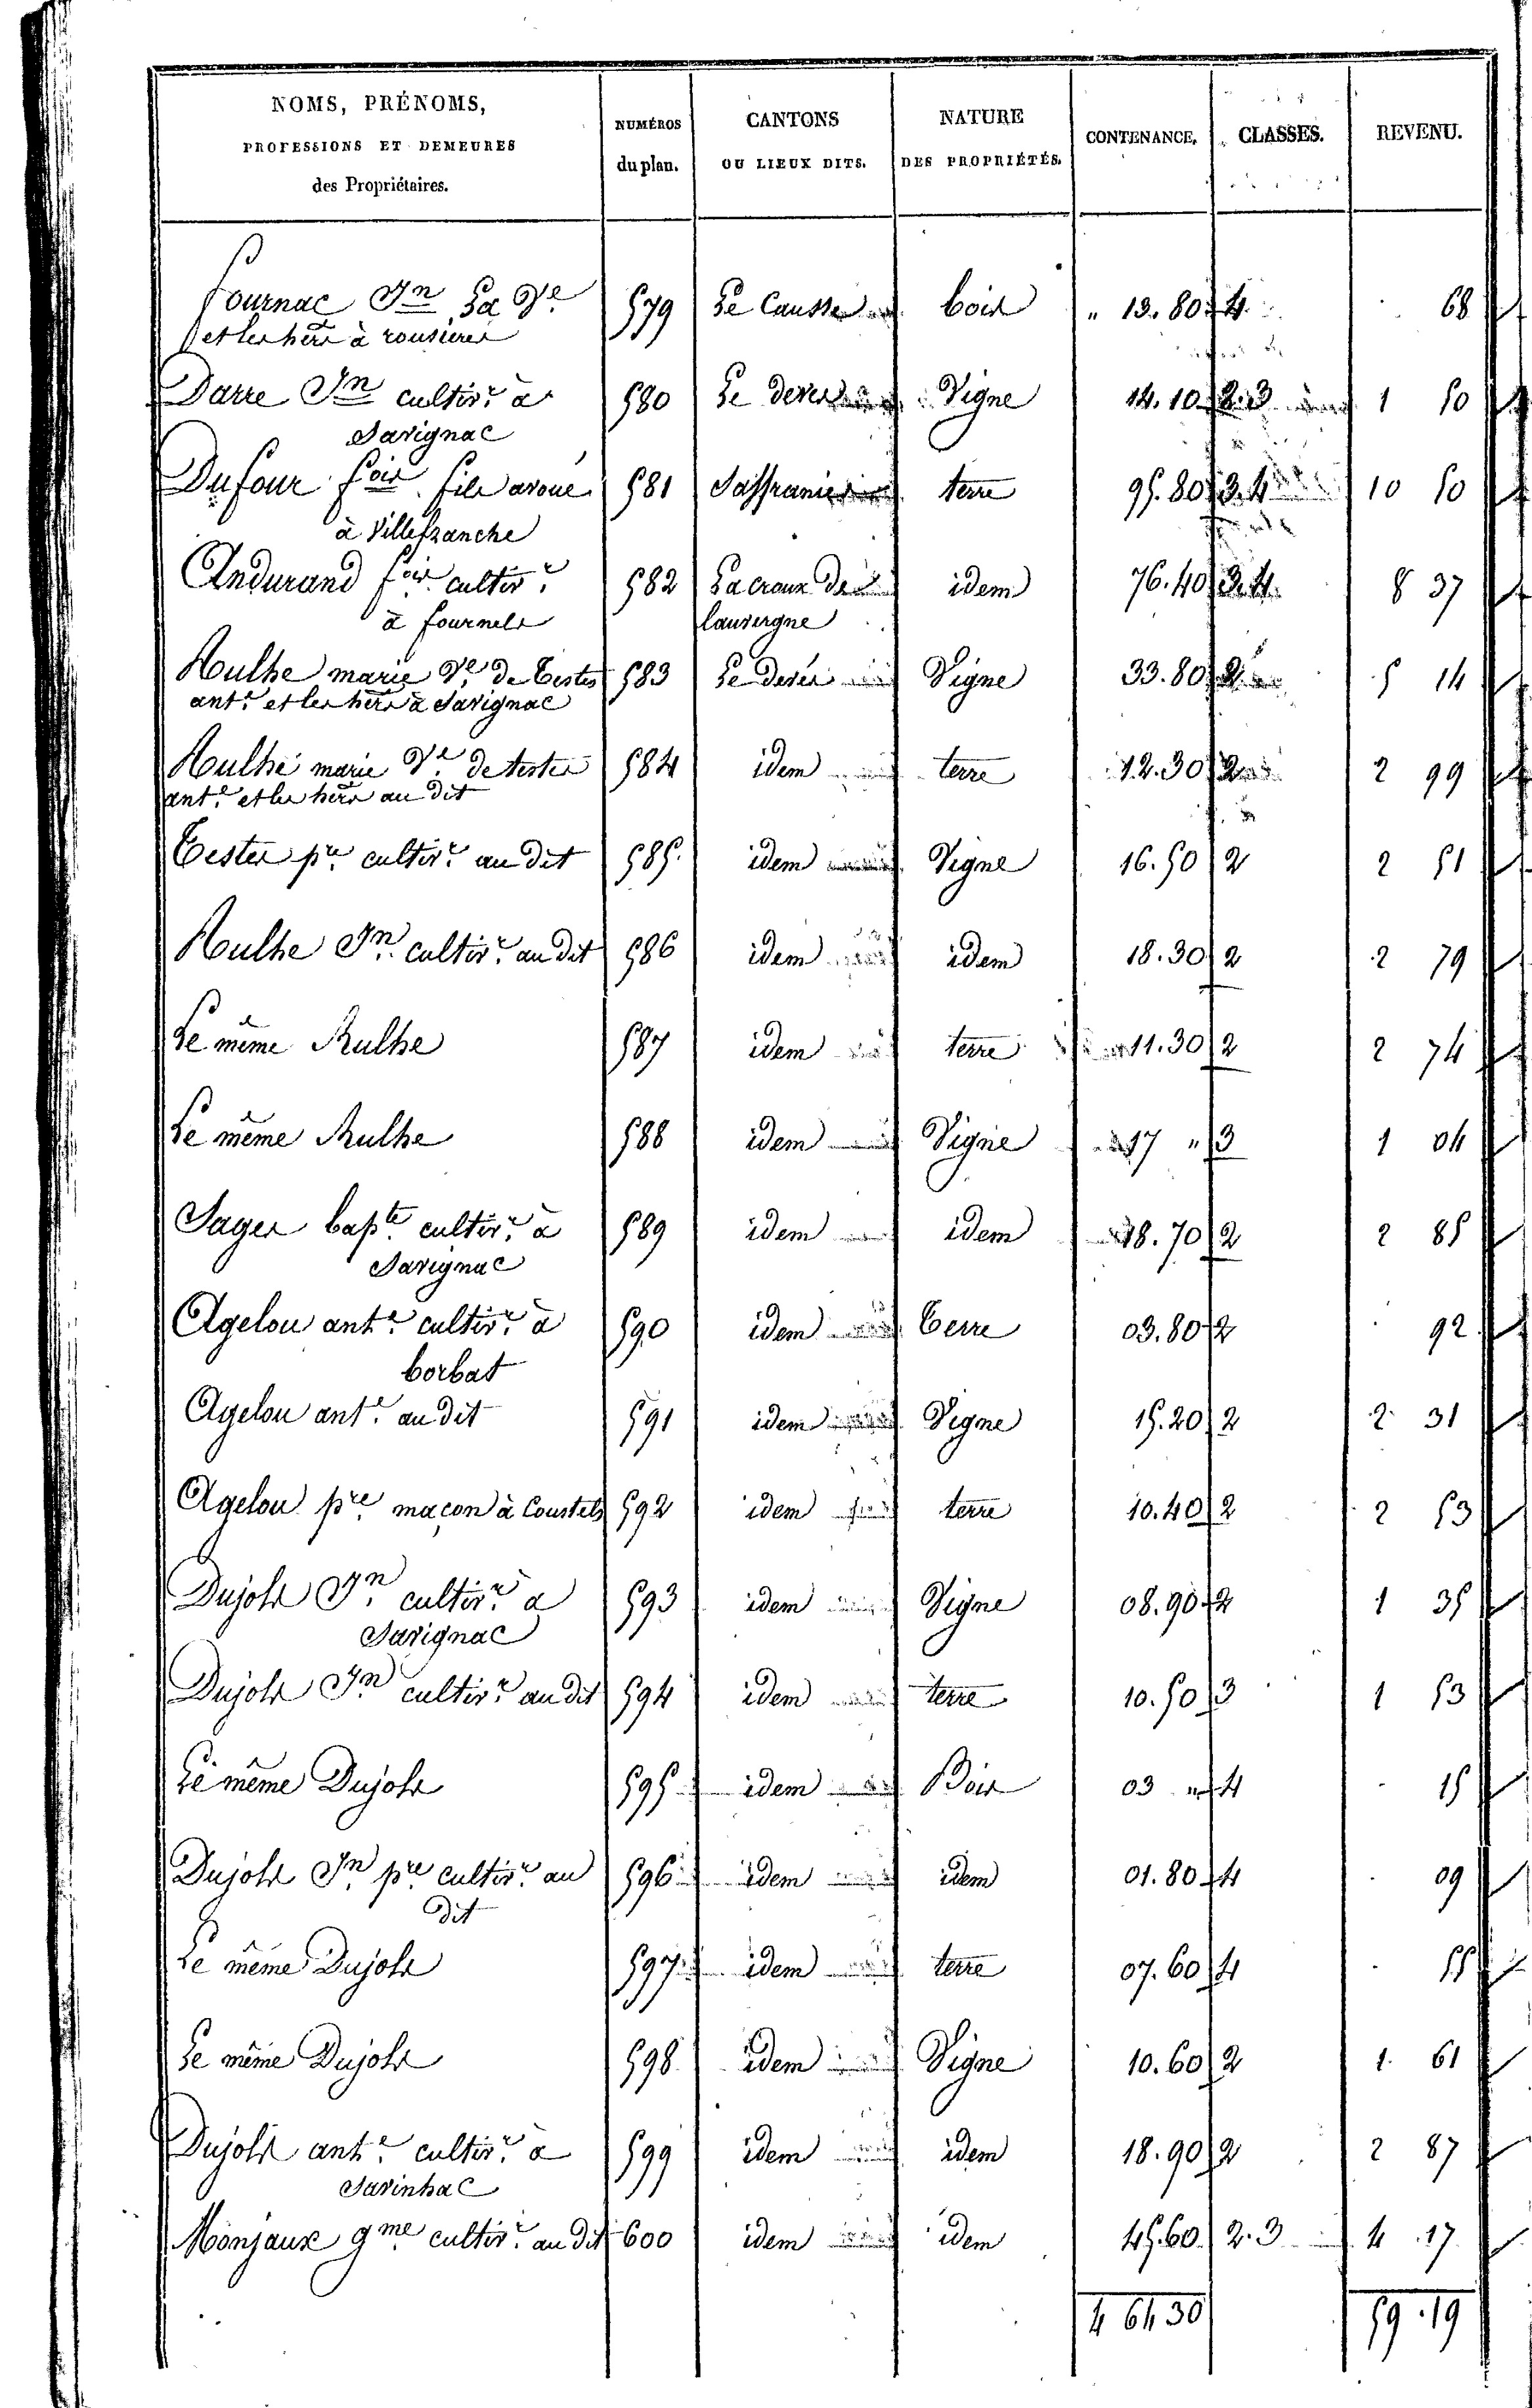 NOMS, PRÉNOMS, PROFESSIONS ET DEMEURES des Propriétaires. | NUMÉROS du plan. | CANTONS OU LIEUX DITS. | NATURE DES PROPRIÉTÉS. | CONTENANCE. | CLASSES. | REVENU.
Fournac Jn La Ve 579 Le Causse bois " 13.80 4 68
et les hérs à rousières
Darre Jn cultivr à 580 Le devès Vigne 14.10 2.3 1 50
Savignac
Dufour fois fils avoué 581 Saffranié terre 95.80 3.4 10 50
à Villefranche
Andurand fois cultivr 582 La croux de idem 76.40 3.4 8 37
à fournels lauvergne
Rulhe marie Ve de Testes 583 Le devès Vigne 33.80 2 5 14
ante et les hérs à Savignac
Rulhe marie Ve de testes 584 idem terre 12.30 2 2 99
ante et les hérs au dit
Testes pre cultivr au dit 585 idem Vigne 16.50 2 2 51
Rulhe Jn cultivr au dit 586 idem idem 18.30 2 2 79
Le même Rulhe 587 idem terre 11.30 2 2 74
Le même Rulhe 588 idem Vigne 17 " 3 1 04
Sages bapte cultivr à 589 idem idem 18.70 2 2 85
Savignac
Agelou ante cultivr à 590 idem Terre 03.80 2 92
borbat
Agelou ante au dit 591 idem Vigne 15.20 2 2 31
Agelou pre maçon à Coustels 592 idem terre 10.40 2 2 53
Dujols Jn cultivr à 593 idem Vigne 08.90 2 1 35
Savignac
Dujols Jn cultivr au dit 594 idem terre 10.50 3 1 53
Le même Dujols 595 idem Bois 03 " 4 15
Dujols Jn pre cultivr au 596 idem idem 01.80 4 09
dit
Le même Dujols 597 idem terre 07.60 4 55
Le même Dujols 598 idem Vigne 10.60 2 1 61
Dujols ante cultivr à 599 idem idem 18.90 2 2 87
Savinhac
Monjaux gme cultivr au dit 600 idem idem 45.60 2.3 4 17
4 64 30 59.19